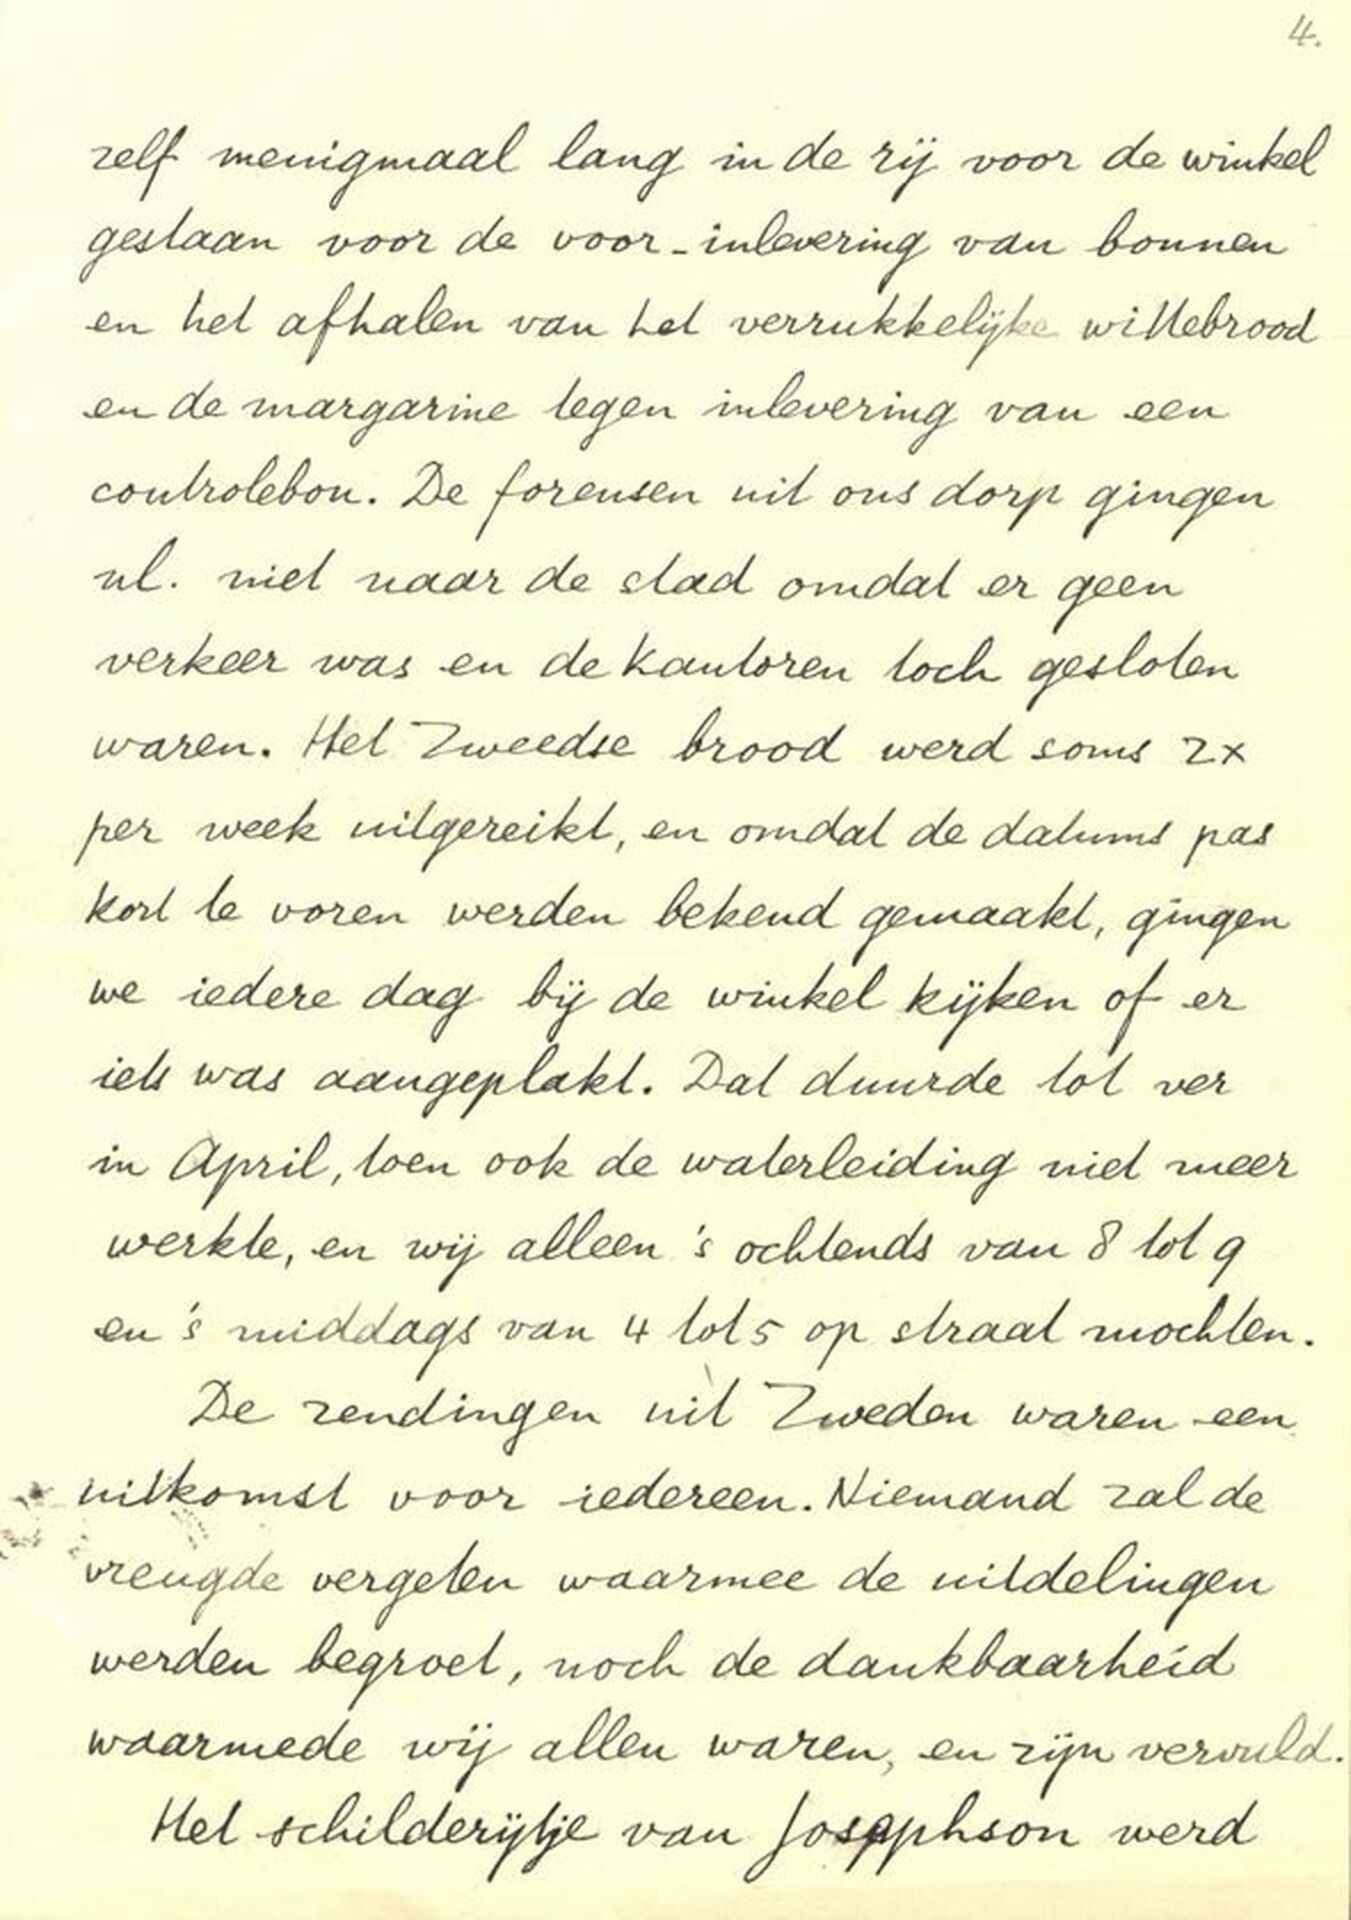 4.
zelf menigmaal lang in de rij voor de winkel
gestaan voor de voor-inlevering van bonnen
en het afhalen van het verrukkelijke wittebrood
en de margarine tegen inlevering van een
controlebon. De forensen uit ons dorp gingen
nl. niet naar de stad omdat er geen
verkeer was en de kantoren toch gesloten
waren. Het Zweedse brood werd soms 2x
per week uitgereikt, en omdat de datums pas
kort te voren werden bekend gemaakt, gingen
we iedere dag bij de winkel kijken of er
iets was aangeplakt. Dat duurde tot ver
in April, toen ook de waterleiding niet meer
werkte, en wij alleen 's ochtends van 8 tot 9
en 's middags van 4 tot 5 op straat mochten.
De zendingen uit Zweden waren een
uitkomst voor iedereen. Niemand zal de
vreugde vergeten waarmee de uitdelingen
werden begroet, noch de dankbaarheid
waarmede wij allen waren, en zijn vervuld.
Het schilderijtje van Josephson werd